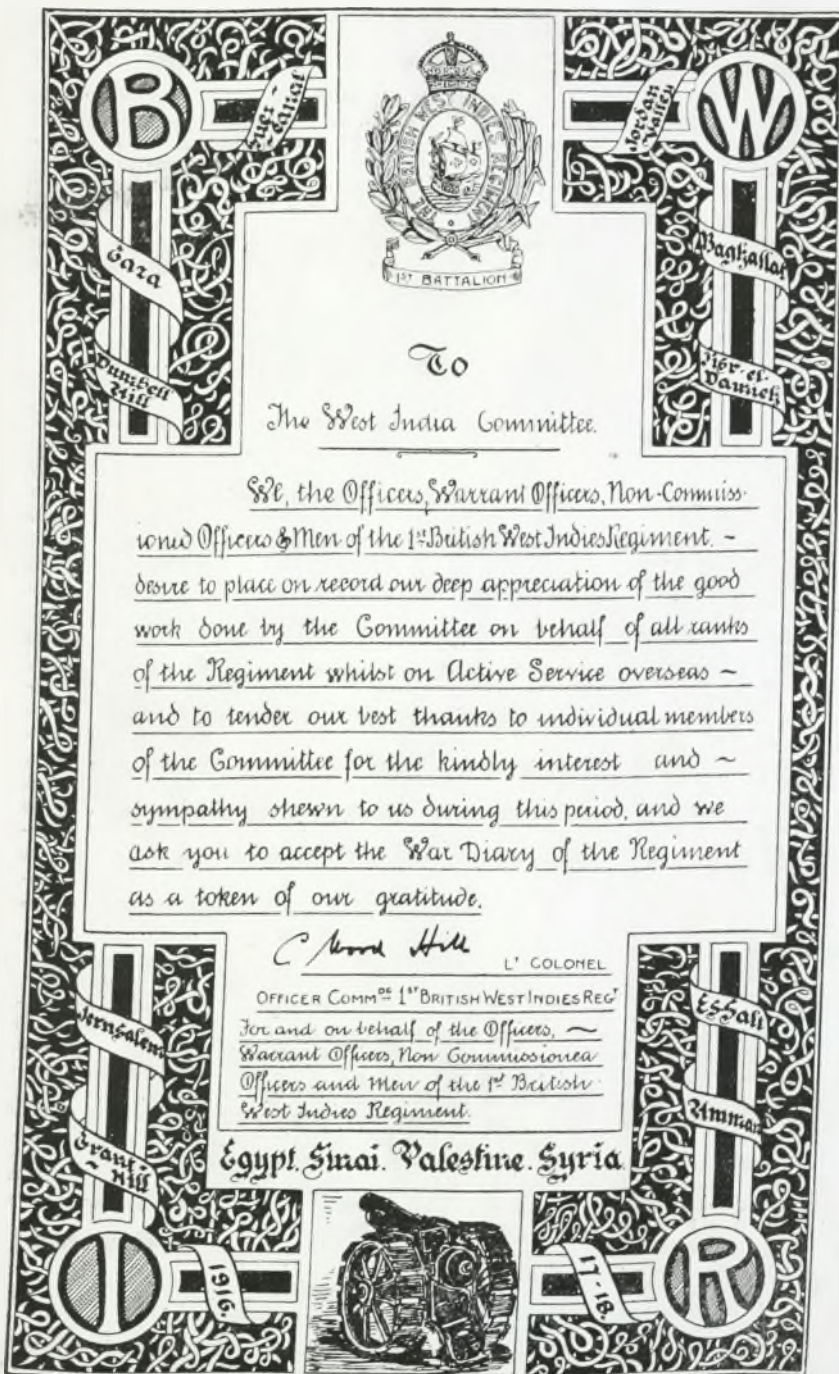 B
W
Suez-Canal
Jordan Valley
THE BRITISH WEST INDIES REGIMENT
1ST BATTALION
Gaza
Dumbell Hill
Baghallat
To
The West India Committee.
We, the Officers, Warrant Officers, Non-Commiss-
ioned Officers & Men of the 1st British West Indies Regiment. ~
desire to place on record our deep appreciation of the good
work done by the Committee on behalf of all ranks
of the Regiment whilst on Active Service overseas ~
and to tender our best thanks to individual members
of the Committee for the kindly interest and ~
sympathy shewn to us during this period, and we
ask you to accept the War Diary of the Regiment
as a token of our gratitude.
C Wood Hill
Lt COLONEL
OFFICER COMMDG 1ST BRITISH WEST INDIES REGT
For and on behalf of the Officers, ~
Warrant Officers, Non Commissioned
Officers and Men of the 1st British
West Indies Regiment.
Jerusalem
Grant-Hill
Es Salt
Amman
Egypt. Sinai. Palestine. Syria.
I
1916.
17-18.
R